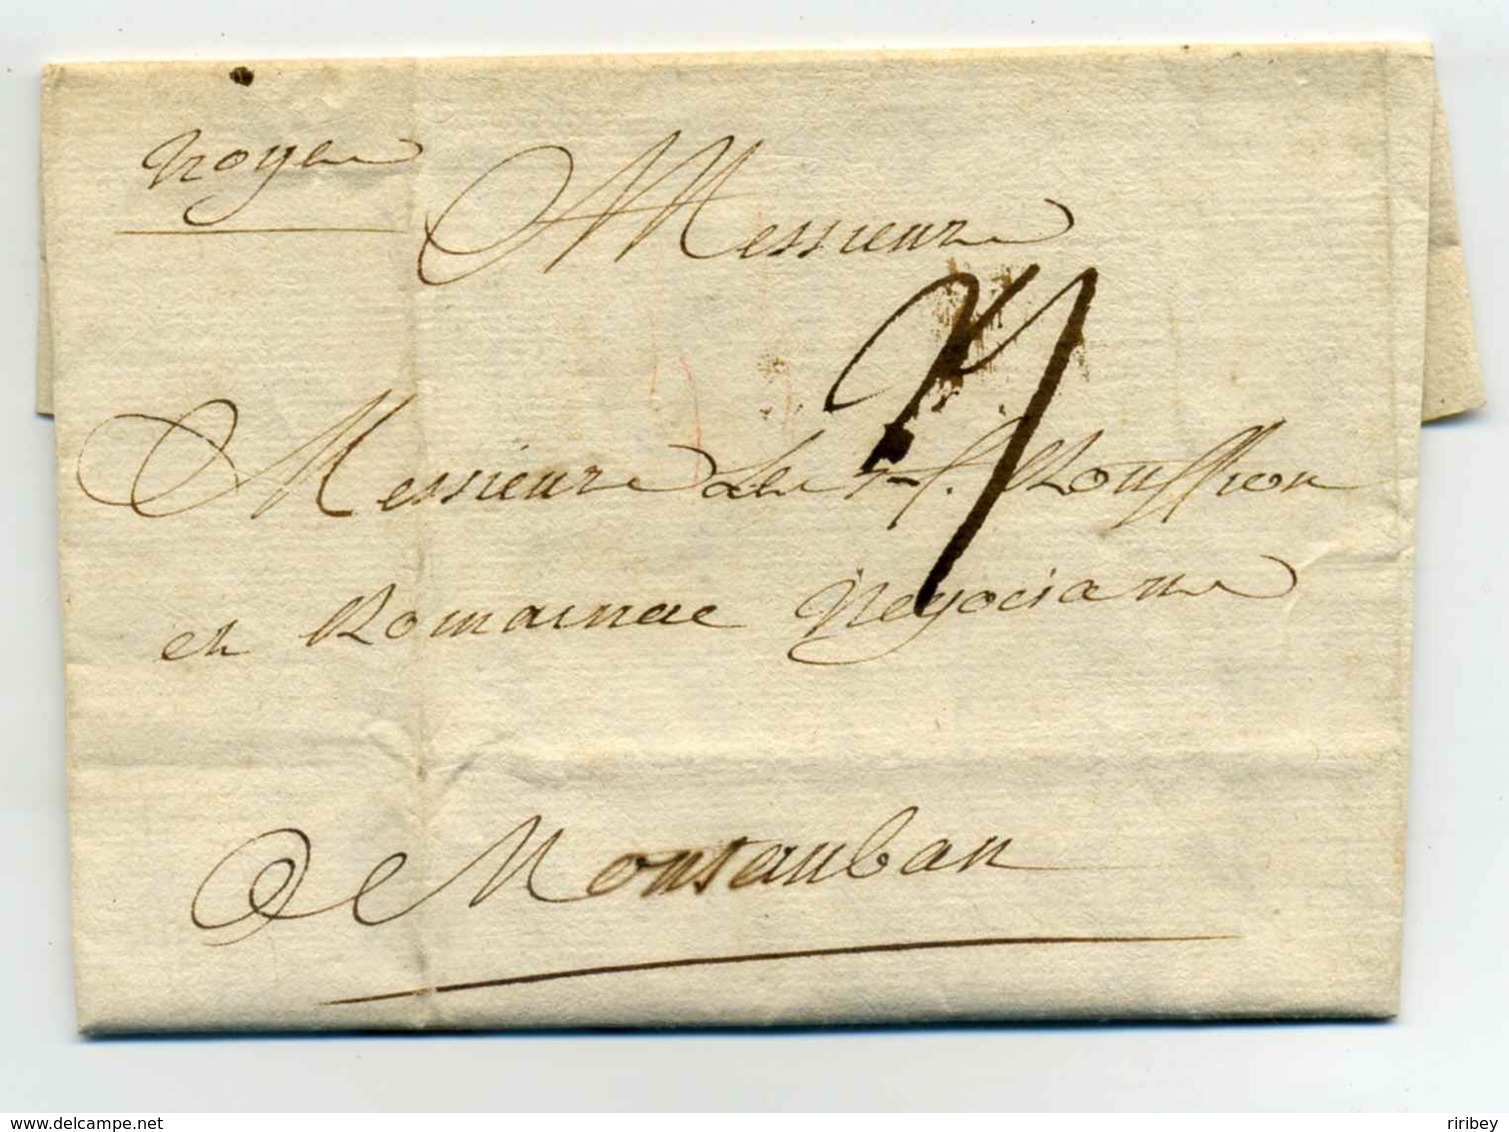 Troyes
Messieurs
Messieurs Les f. Rouffion
et Romainac Negocians
a Montauban
www.delcampe.net
riribey